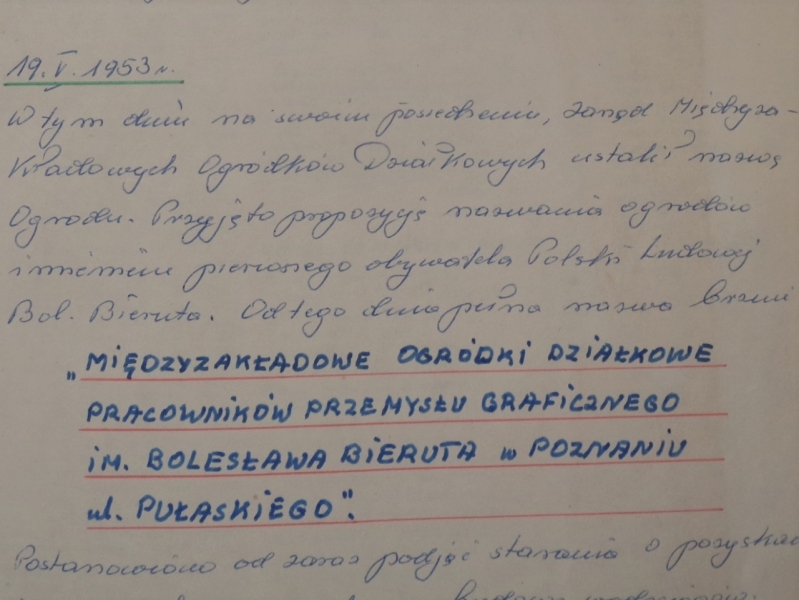 19.V.1953 r.
W tym dniu na swoim posiedzeniu, zarząd Międzyza-
kładowych Ogródków Działkowych ustalił nazwę
Ogrodu. Przyjęto propozycję nazwania ogrodów
imieniem pierwszego obywatela Polski Ludowej
Bol. Bieruta. Od tego dnia pełna nazwa brzmi
„MIĘDZYZAKŁADOWE OGRÓDKI DZIAŁKOWE
PRACOWNIKÓW PRZEMYSŁU GRAFICZNEGO
IM. BOLESŁAWA BIERUTA w POZNANIU
ul. PUŁASKIEGO".
Postanowiono od zaraz podjąć starania o pozyskan